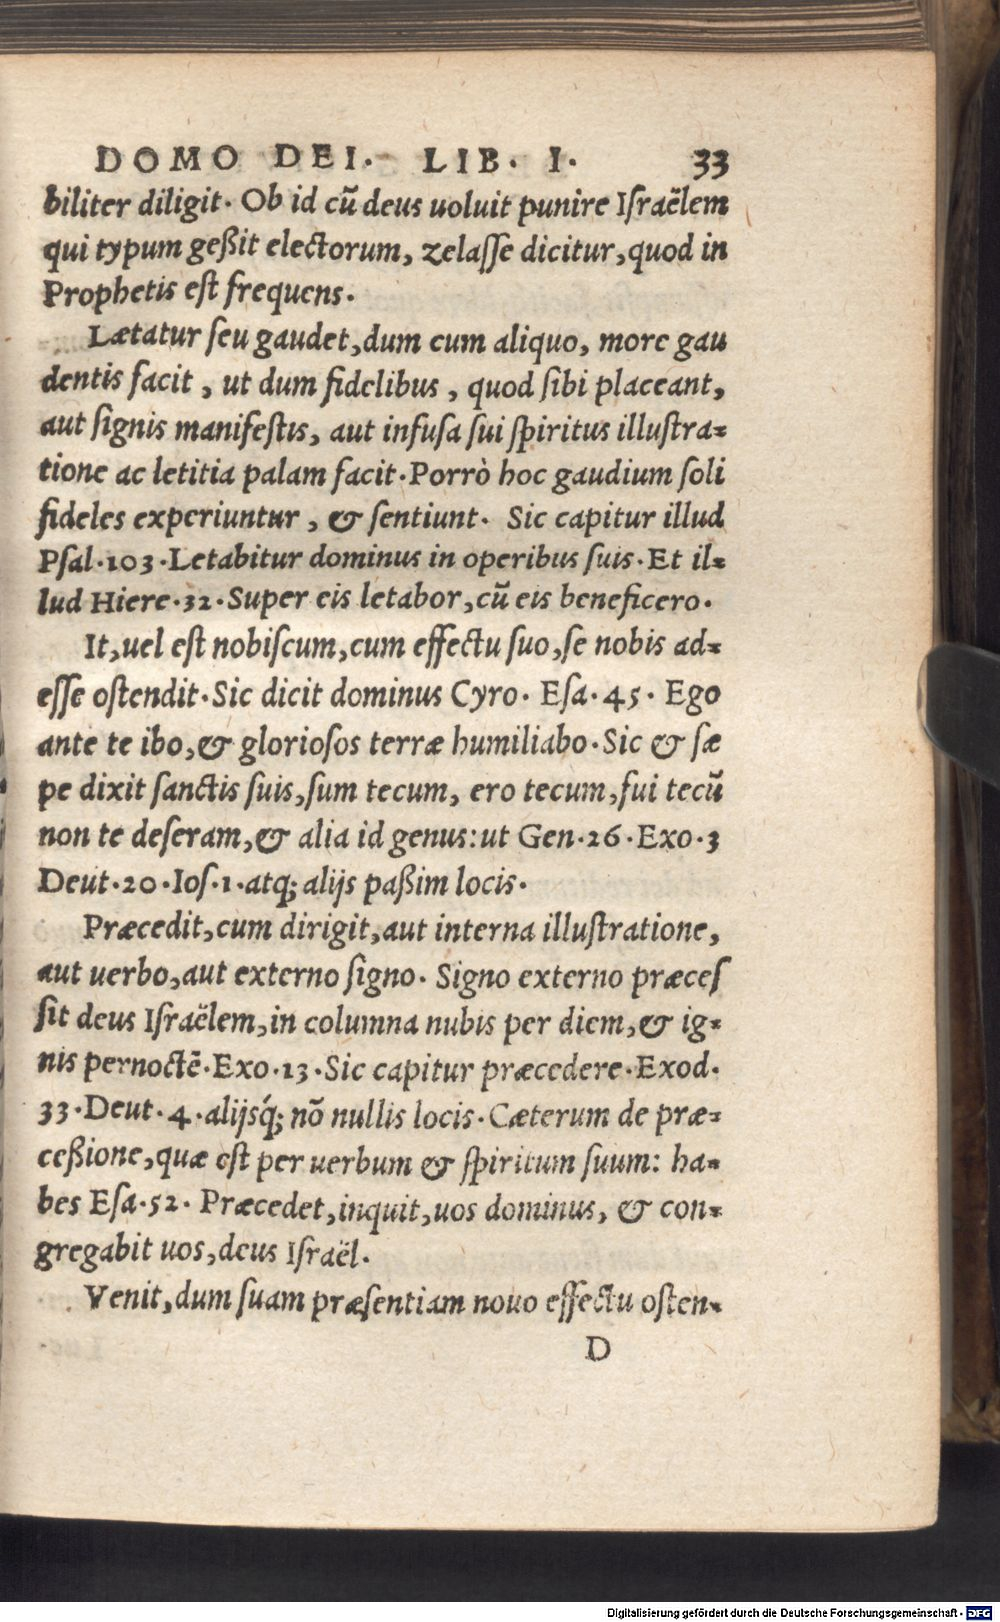 DOMO DEI. LIB. I. 33
biliter diligit. Ob id cũ deus uoluit punire Iſraëlem
qui typum geßit electorum, zelaſſe dicitur, quod in
Prophetis eſt frequens.
Lætatur ſeu gaudet, dum cum aliquo, more gau
dentis facit, ut dum fidelibus, quod ſibi placeant,
aut ſignis manifeſtis, aut infuſa ſui ſpiritus illuſtra-
tione ac letitia palam facit. Porrò hoc gaudium ſoli
fideles experiuntur, & ſentiunt. Sic capitur illud
Pſal. 103. Letabitur dominus in operibus ſuis. Et il-
lud Hiere. 32. Super eis letabor, cũ eis beneficero.
It, uel eſt nobiſcum, cum effectu ſuo, ſe nobis ad-
eſſe oſtendit. Sic dicit dominus Cyro. Eſa. 45. Ego
ante te ibo, & glorioſos terræ humiliabo. Sic & ſæ
pe dixit ſanctis ſuis, ſum tecum, ero tecum, fui tecũ
non te deſeram, & alia id genus: ut Gen. 26. Exo. 3
Deut. 20. Ioſ. 1. atq; alijs paßim locis.
Præcedit, cum dirigit, aut interna illuſtratione,
aut uerbo, aut externo ſigno. Signo externo præceſ
ſit deus Iſraëlem, in columna nubis per diem, & ig-
nis pernoctẽ. Exo. 13. Sic capitur præcedere. Exod.
33. Deut. 4. alijsq́; nõ nullis locis. Cæterum de præ-
ceßione, quæ eſt per uerbum & ſpiritum ſuum: ha-
bes Eſa. 52. Præcedet, inquit, uos dominus, & con-
gregabit uos, deus Iſraël.
Venit, dum ſuam præſentiam nouo effectu oſten-
D
Digitalisierung gefördert durch die Deutsche Forschungsgemeinschaft - DFG